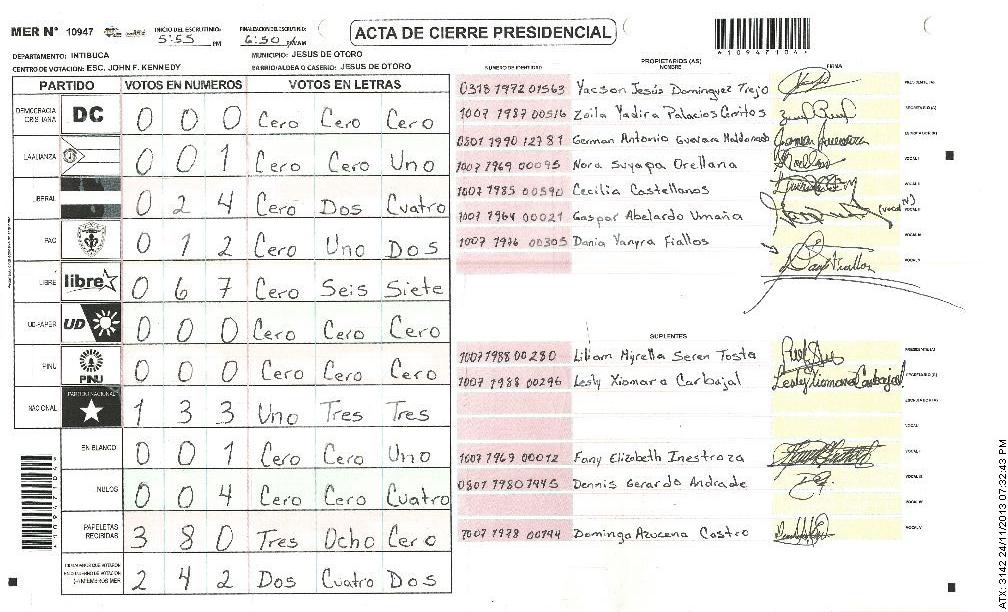 MER N° 10947 INICIO DEL ESCRUTINIO: 5:55 PM FINALIZACION DEL ESCRUTINIO: 6:50 PM/AM
ACTA DE CIERRE PRESIDENCIAL
DEPARTAMENTO: INTIBUCA MUNICIPIO: JESUS DE OTORO
CENTRO DE VOTACION: ESC. JOHN F. KENNEDY BARRIO/ALDEA O CASERIO: JESUS DE OTORO
PARTIDO VOTOS EN NUMEROS VOTOS EN LETRAS
DEMOCRACIA CRISTIANA DC 0 0 0 Cero Cero Cero
LA ALIANZA 0 0 1 Cero Cero Uno
LIBERAL 0 2 4 Cero Dos Cuatro
PAC 0 1 2 Cero Uno Dos
LIBRE libre 0 6 7 Cero Seis Siete
UD-FAPER UD 0 0 0 Cero Cero Cero
PINU PINU 0 0 0 Cero Cero Cero
NACIONAL PARTIDO NACIONAL 1 3 3 Uno Tres Tres
EN BLANCO 0 0 1 Cero Cero Uno
NULOS 0 0 4 Cero Cero Cuatro
PAPELETAS RECIBIDAS 3 8 0 Tres Ocho Cero
2 4 2 Dos Cuatro Dos
*10947104*
NUMERO DE IDENTIDAD PROPIETARIOS (AS) NOMBRE FIRMA
0318 1972 01563 Yacson Jesús Dominguez Trejo PRESIDENTE(A)
1007 1987 00516 Zoila Yadira Palacios Cerritos SECRETARIO(A)
0801 1990 12781 German Antonio Guevara Maldonado ESCRUTADOR(A)
1007 1969 00095 Nora Suyapa Orellana VOCAL I
1007 1985 00590 Cecilia Castellanos VOCAL II
1007 1964 00021 Gaspar Abelardo Umaña (vocal IV)
1007 1976 00305 Dania Yanyra Fiallos VOCAL IV
VOCAL V
SUPLENTES
1007 1988 00280 Liliam Myrella Seren Tosta PRESIDENTE(A)
1007 1988 00296 Lesly Xiomara Carbajal Lesly Xiomara Carbajal SECRETARIO(A)
ESCRUTADOR(A)
VOCAL I
1007 1969 00012 Fany Elizabeth Inestroza
0801 1980 7445 Dennis Gerardo Andrade VOCAL III
VOCAL IV
1007 1978 00144 Dominga Azucena Castro VOCAL V
*10947104*
ATX: 3142 24/11/2013 07:32:43 PM